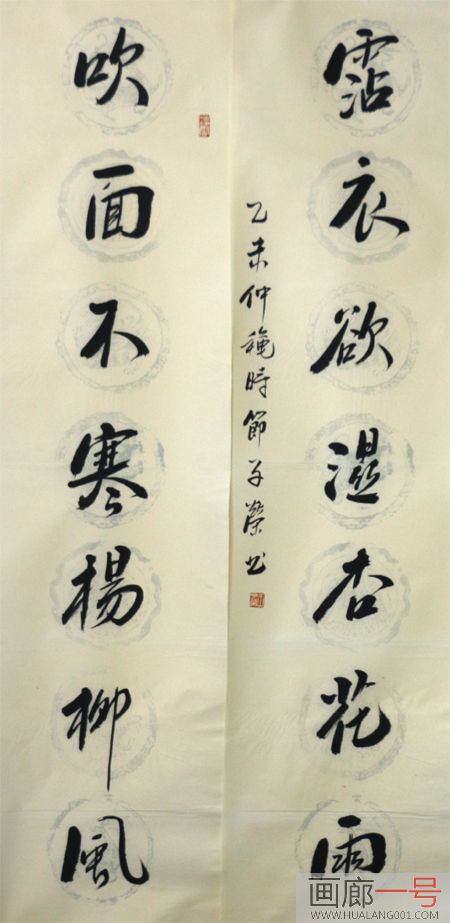 霑衣欲濕杏花雨
乙未仲穐時節子榮书
吹面不寒楊柳風
画廊一号
WWW.HUALANG001.COM